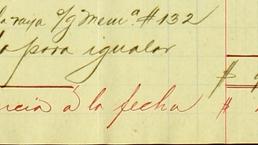 la raya s/g Mem.ª # 132
lo para igualar
#
ncia á la fecha #